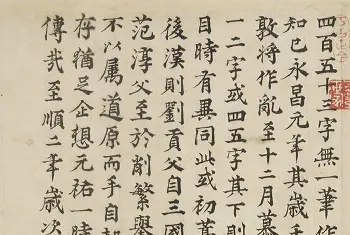 四百五十三字無一筆作
知已永昌元年其歲
敦將作亂至十二月慕
一二字或四五字其下則
目時有異同此或初葉
後漢則劉貢父自三國
范淳父至於削繁舉
不以屬道原而手自
存猶足企想元祐一時
傳哉至順二年歲次